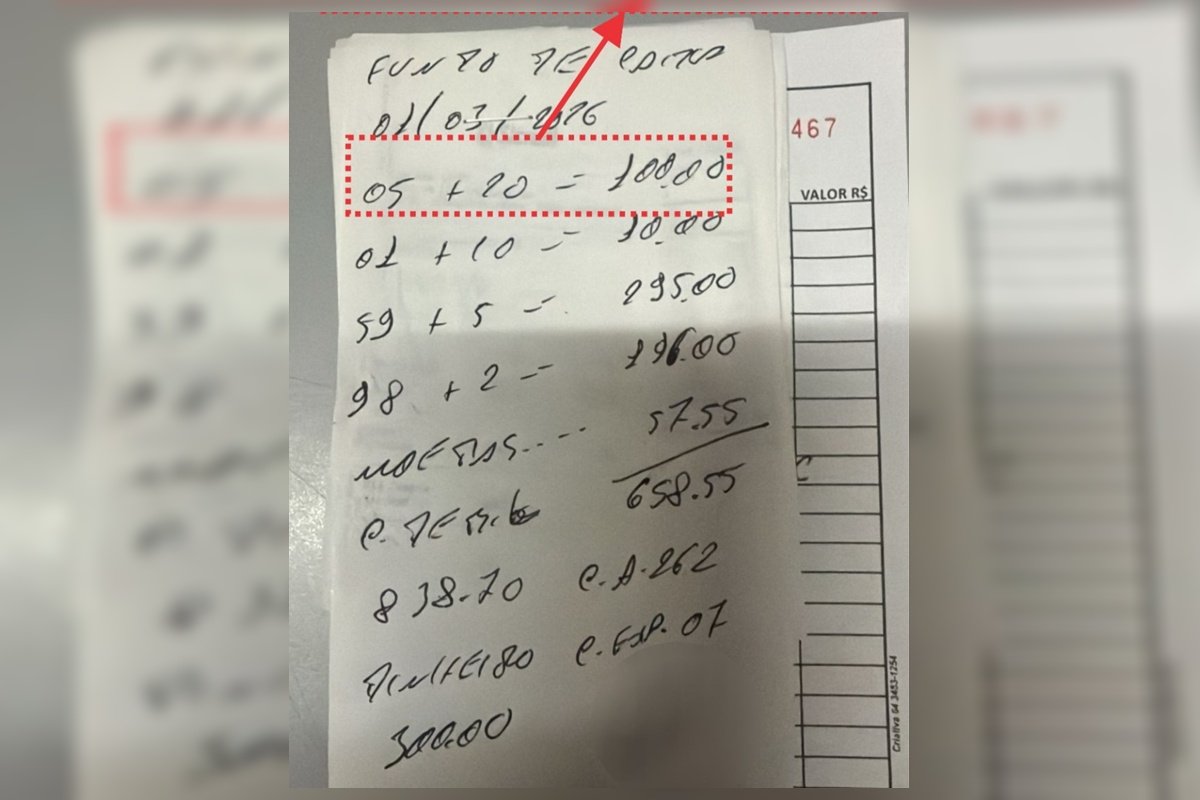 FUNDO DE CAIXA
01/03/2026
05 + 20 = 100.00
01 + 10 = 10.00
59 + 5 = 295.00
98 + 2 = 196.00
MOEDAS.... 57.55
658.55
C. DEB.
838.70 C.A. 262
DINHEIRO C.ESP. 07
300.00
467
VALOR R$
Criativa 64 3453-1254